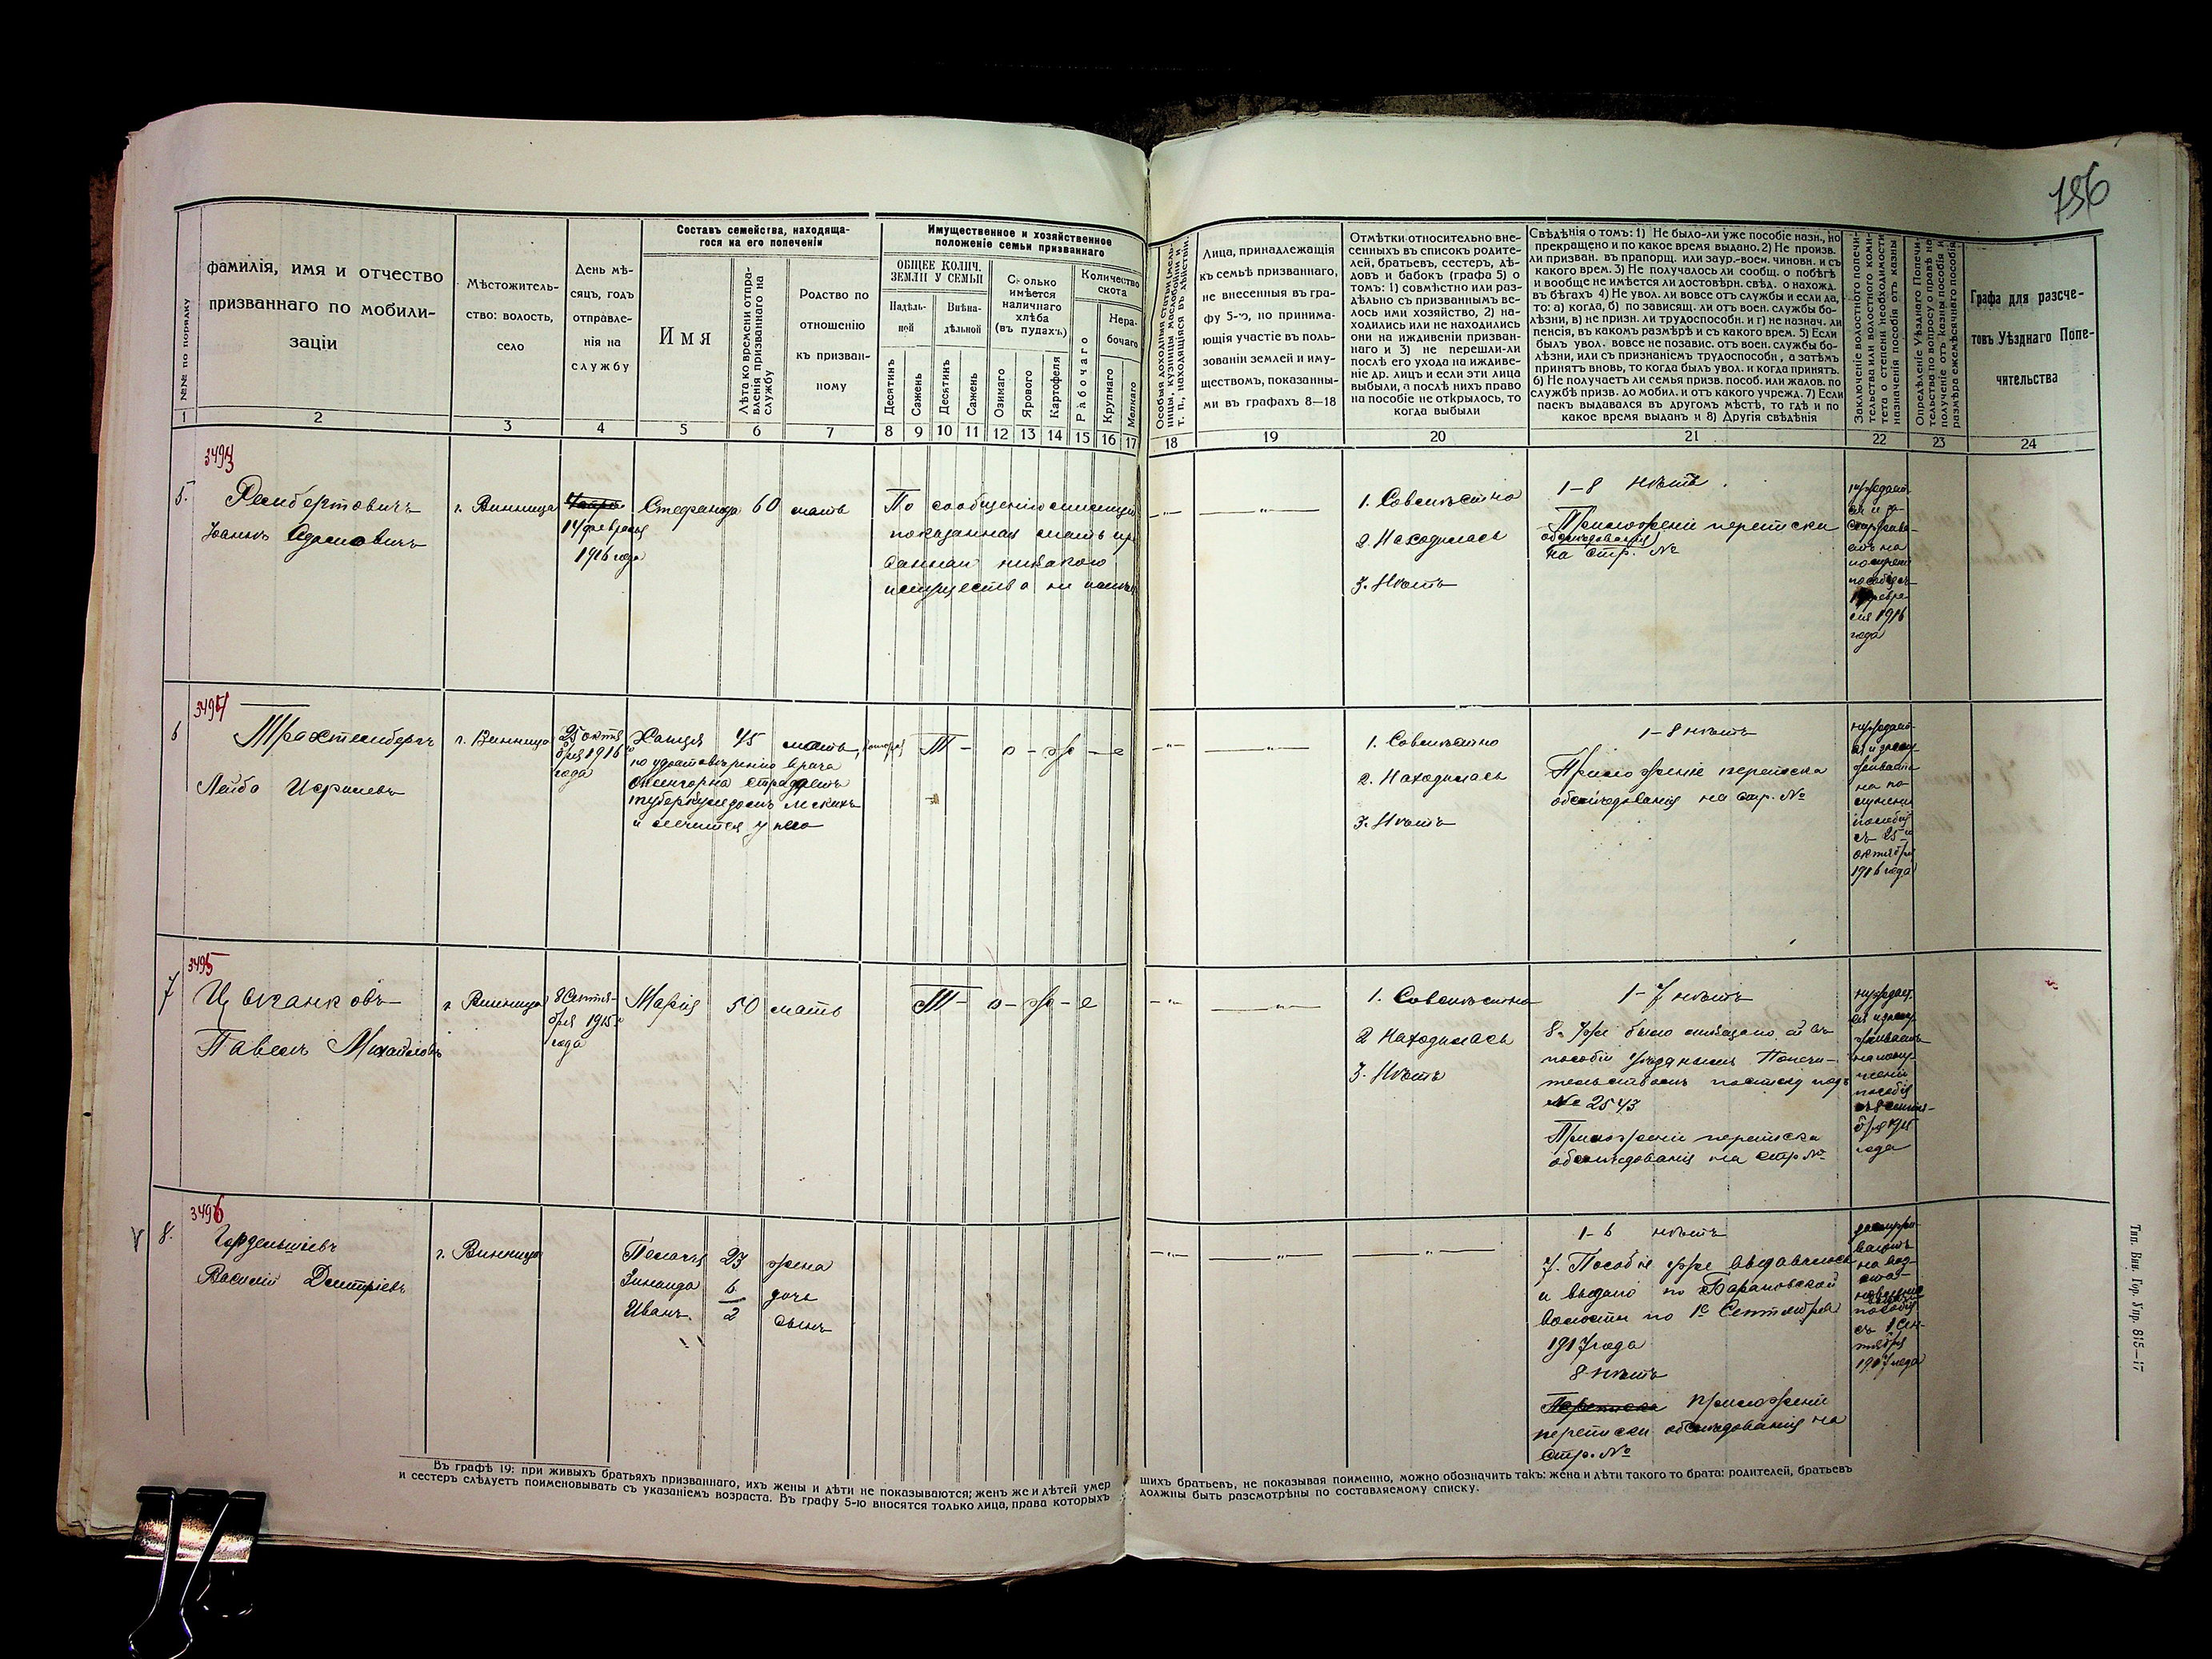 756
№№ по порядку
фамилія, имя и отчество
призваннаго по мобили-
заціи
Мѣстожитель-
ство: волость,
село
День мѣ-
сяцъ, годъ
отправле-
нія на
службу
Составъ семейства, находяща-
гося на его попеченіи
Имя
Лѣта ко времени отпра-
вленія призваннаго на
службу
Родство по
отношенію
къ призван-
ному
Имущественное и хозяйственное
положеніе семьи призваннаго
ОБЩЕЕ КОЛИЧ.
ЗЕМЛИ У СЕМЬИ
Надѣль-
ной
Внѣна-
дѣльной
Десятинъ
Сажень
Десятинъ
Сажень
Сколько
имѣется
наличнаго
хлѣба
(въ пудахъ)
Озимаго
Ярового
Картофеля
Количество
скота
Рабочаго
Нера-
бочаго
Крупнаго
Мелкаго
Особыя доходныя статьи (мель-
ницы, кузницы маслобойни и
т. п., находящіяся въ дѣйствіи.
Лица, принадлежащія
къ семьѣ призваннаго,
не внесенныя въ гра-
фу 5-ю, но принима-
ющія участіе въ поль-
зованіи землей и иму-
ществомъ, показанны-
ми въ графахъ 8—18
Отмѣтки относительно вне-
сенныхъ въ списокъ родите-
лей, братьевъ, сестеръ, дѣ-
довъ и бабокъ (графа 5) о
томъ: 1) совмѣстно или раз-
дѣльно съ призваннымъ ве-
лось ими хозяйство, 2) на-
ходились или не находились
они на иждивеніи призван-
наго и 3) не перешли-ли
послѣ его ухода на иждиве-
ніе др. лицъ и если эти лица
выбыли, а послѣ нихъ право
на пособіе не открылось, то
когда выбыли
Свѣдѣнія о томъ: 1) Не было-ли уже пособіе назн., но
прекращено и по какое время выдано. 2) Не произв.
ли призван. въ прапорщ. или заур.-воен. чиновн. и съ
какого врем. 3) Не получалось ли сообщ. о побѣгѣ
и вообще не имѣется ли достовѣрн. свѣд. о нахожд.
въ бѣгахъ 4) Не увол. ли вовсе отъ службы и если да,
то: а) когда, б) по зависящ. ли отъ воен. службы бо-
лѣзни, в) не призн. ли трудоспособн. и г) не назнач. ли
пенсія, въ какомъ размѣрѣ и съ какого врем. 5) Если
былъ увол. вовсе не позавис. отъ воен. службы бо-
лѣзни, или съ признаніемъ трудоспособн., а затѣмъ
принятъ вновь, то когда былъ увол. и когда принятъ.
6) Не получаетъ ли семья призв. пособ. или жалов. по
службѣ призв. до мобил. и отъ какого учрежд. 7) Если
паекъ выдавался въ другомъ мѣстѣ, то гдѣ и по
какое время выданъ и 8) Другія свѣдѣнія
Заключеніе волостного попечи-
тельства или волостного коми-
тета о степени необходимости
назначенія пособія отъ казны
Опредѣленіе Уѣзднаго Попечи-
тельства по вопросу о правѣ на
полученіе отъ казны пособія и
размѣра ежемѣсячнаго пособія
Графа для разсче-
товъ Уѣзднаго Попе-
чительства
1 2 3 4 5 6 7 8 9 10 11 12 13 14 15 16 17 18 19 20 21 22 23 24
3493
5. Рембертовичъ
Іоаннъ Адамовичъ
г. Винница
14 февраля
1916 года
Стефанида 60 мать
По сообщенію полиціи
показанная мать
никакого
имущества не имѣетъ
1. Совмѣстно
2. Находилась
3. Нѣтъ
1-8 нѣтъ.
Приложеніе переписки
обслѣдованія
на стр. №
нуждает-
ся и за-
служива-
етъ на
пособія съ
14 февра-
ля 1916
года
3494
6 Трахтенбергъ
Лейба Исрилевъ
г. Винница
25 октя
бря 1916
года
Ханця 45 мать, которая
по удостовѣренію врача
страдаетъ
туберкулезомъ легкихъ
и лечится у него
Т - о - ж - е
1. Совмѣстно
2. Находилась
3. Нѣтъ
1-8 нѣтъ
Приложеніе переписка
обслѣдованія на стр. №
нуждает-
ся и заслу-
живаетъ
на по-
лученіе
пособія
съ 25-го
октября
1916 года
3495
7 Цыганковъ
Павелъ Михайловъ
г. Винница
8 Сентя-
бря 1915
года
Марія 50 мать
Т - о - ж - е
1. Совмѣстно
2 Находилась
3. Нѣтъ
1-7 нѣтъ
8. Уже было отказано ей въ
пособіи Уѣзднымъ Попечи-
тельствомъ по списку подъ
№ 2543
Приложеніе переписка
обслѣдованія на Стр. №
нуждает-
ся и заслу-
живаетъ
на полу-
ченіе
пособія
съ 8 Сентя-
бря 1915
года
3496
8. Гордельшіевъ
Василій Дмитріевъ
г. Винница
Пелагія 23 жена
Зинаида 6 дочь
Иванъ 2 сынъ
1-6 нѣтъ
7. Пособіе уже выдавалось
и выдано по Барановской
волости по 1е Сентября
1917 года
8 нѣтъ
приложеніе
переписки обслѣдованія на
Стр. №
заслужи-
ваютъ
на воз-
ста-
новленіе
пособія
съ 1 Сен-
тября
1917 года
Въ графѣ 19: при живыхъ братьяхъ призваннаго, ихъ жены и дѣти не показываются; женъ же и дѣтей умер
шихъ братьевъ, не показывая поименно, можно обозначить такъ: жена и дѣти такого то брата: родителей, братьевъ
и сестеръ слѣдуетъ поименовывать съ указаніемъ возраста. Въ графу 5-ю вносятся только лица, права которыхъ
должны быть разсмотрѣны по составляемому списку.
Тип. Вин. Гор. Упр. 815—17